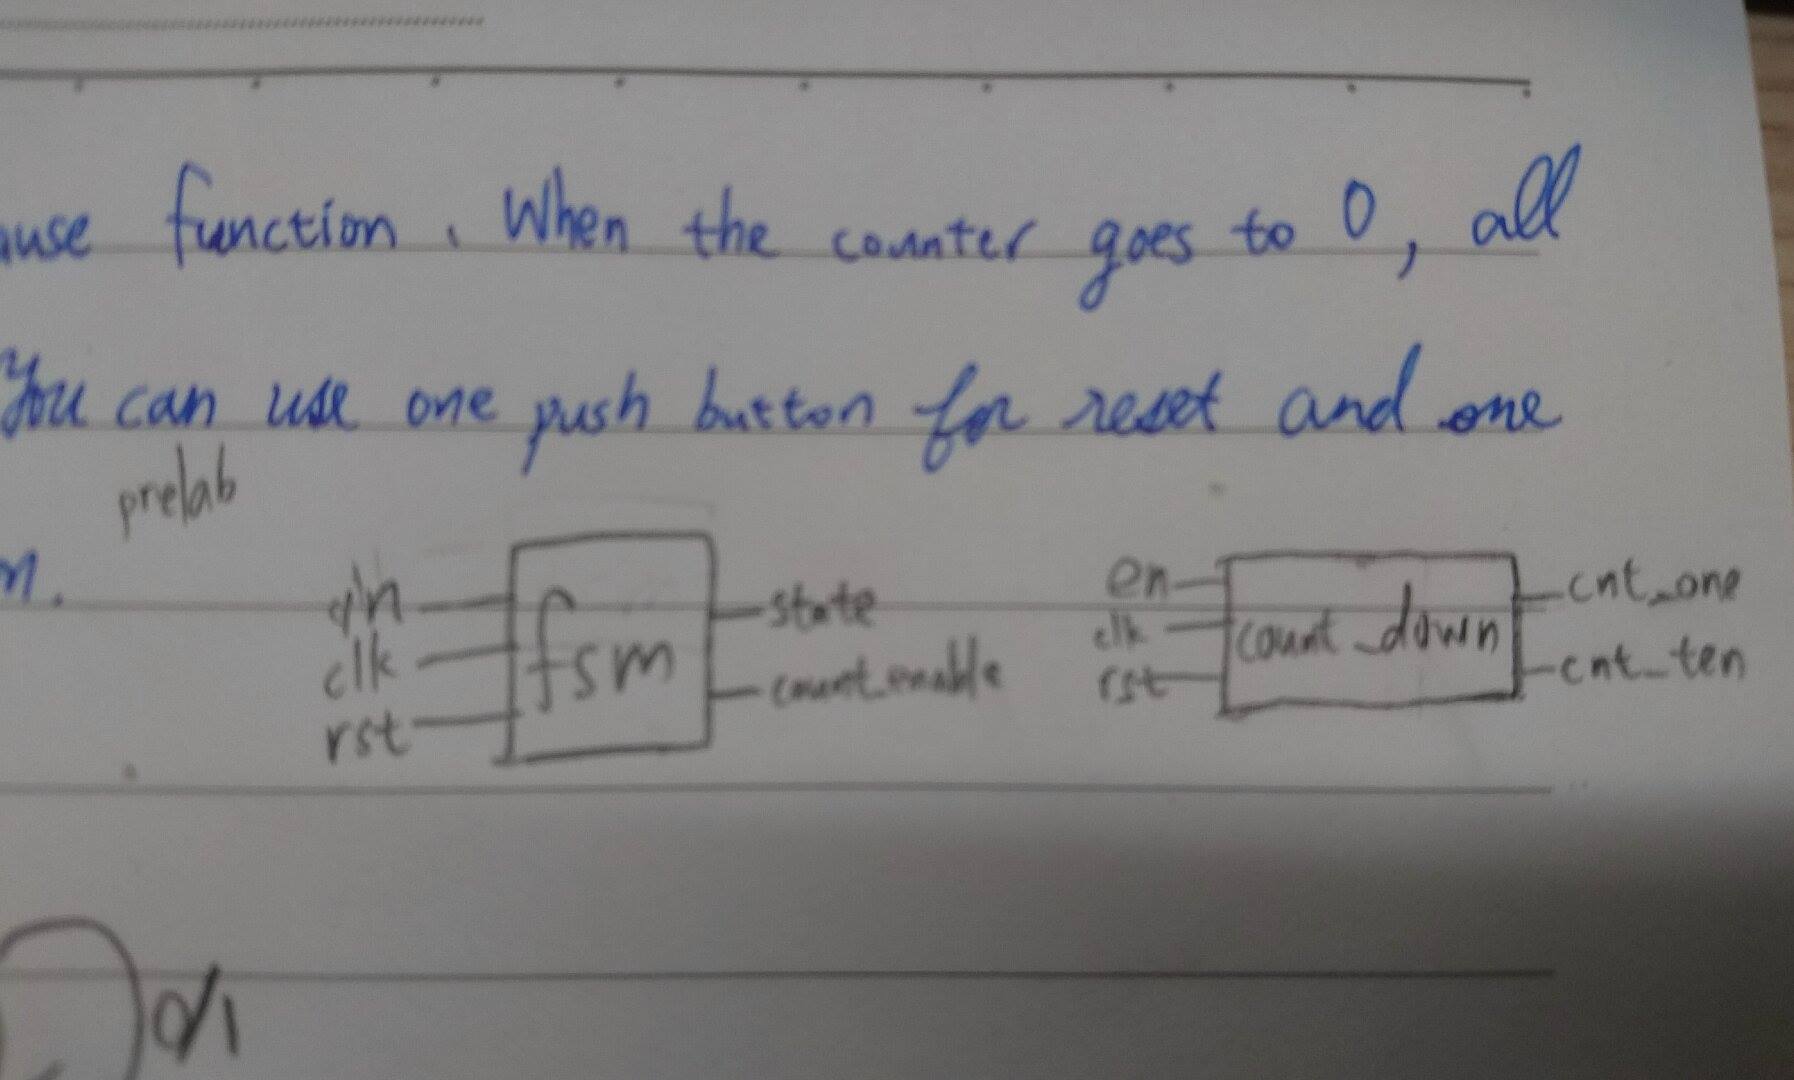 function. When the counter goes to 0, all
You can use one push button for reset and one
prelab
in
clk
rst
fsm
state
count_enable
en
clk
rst
count_down
cnt_one
cnt_ten